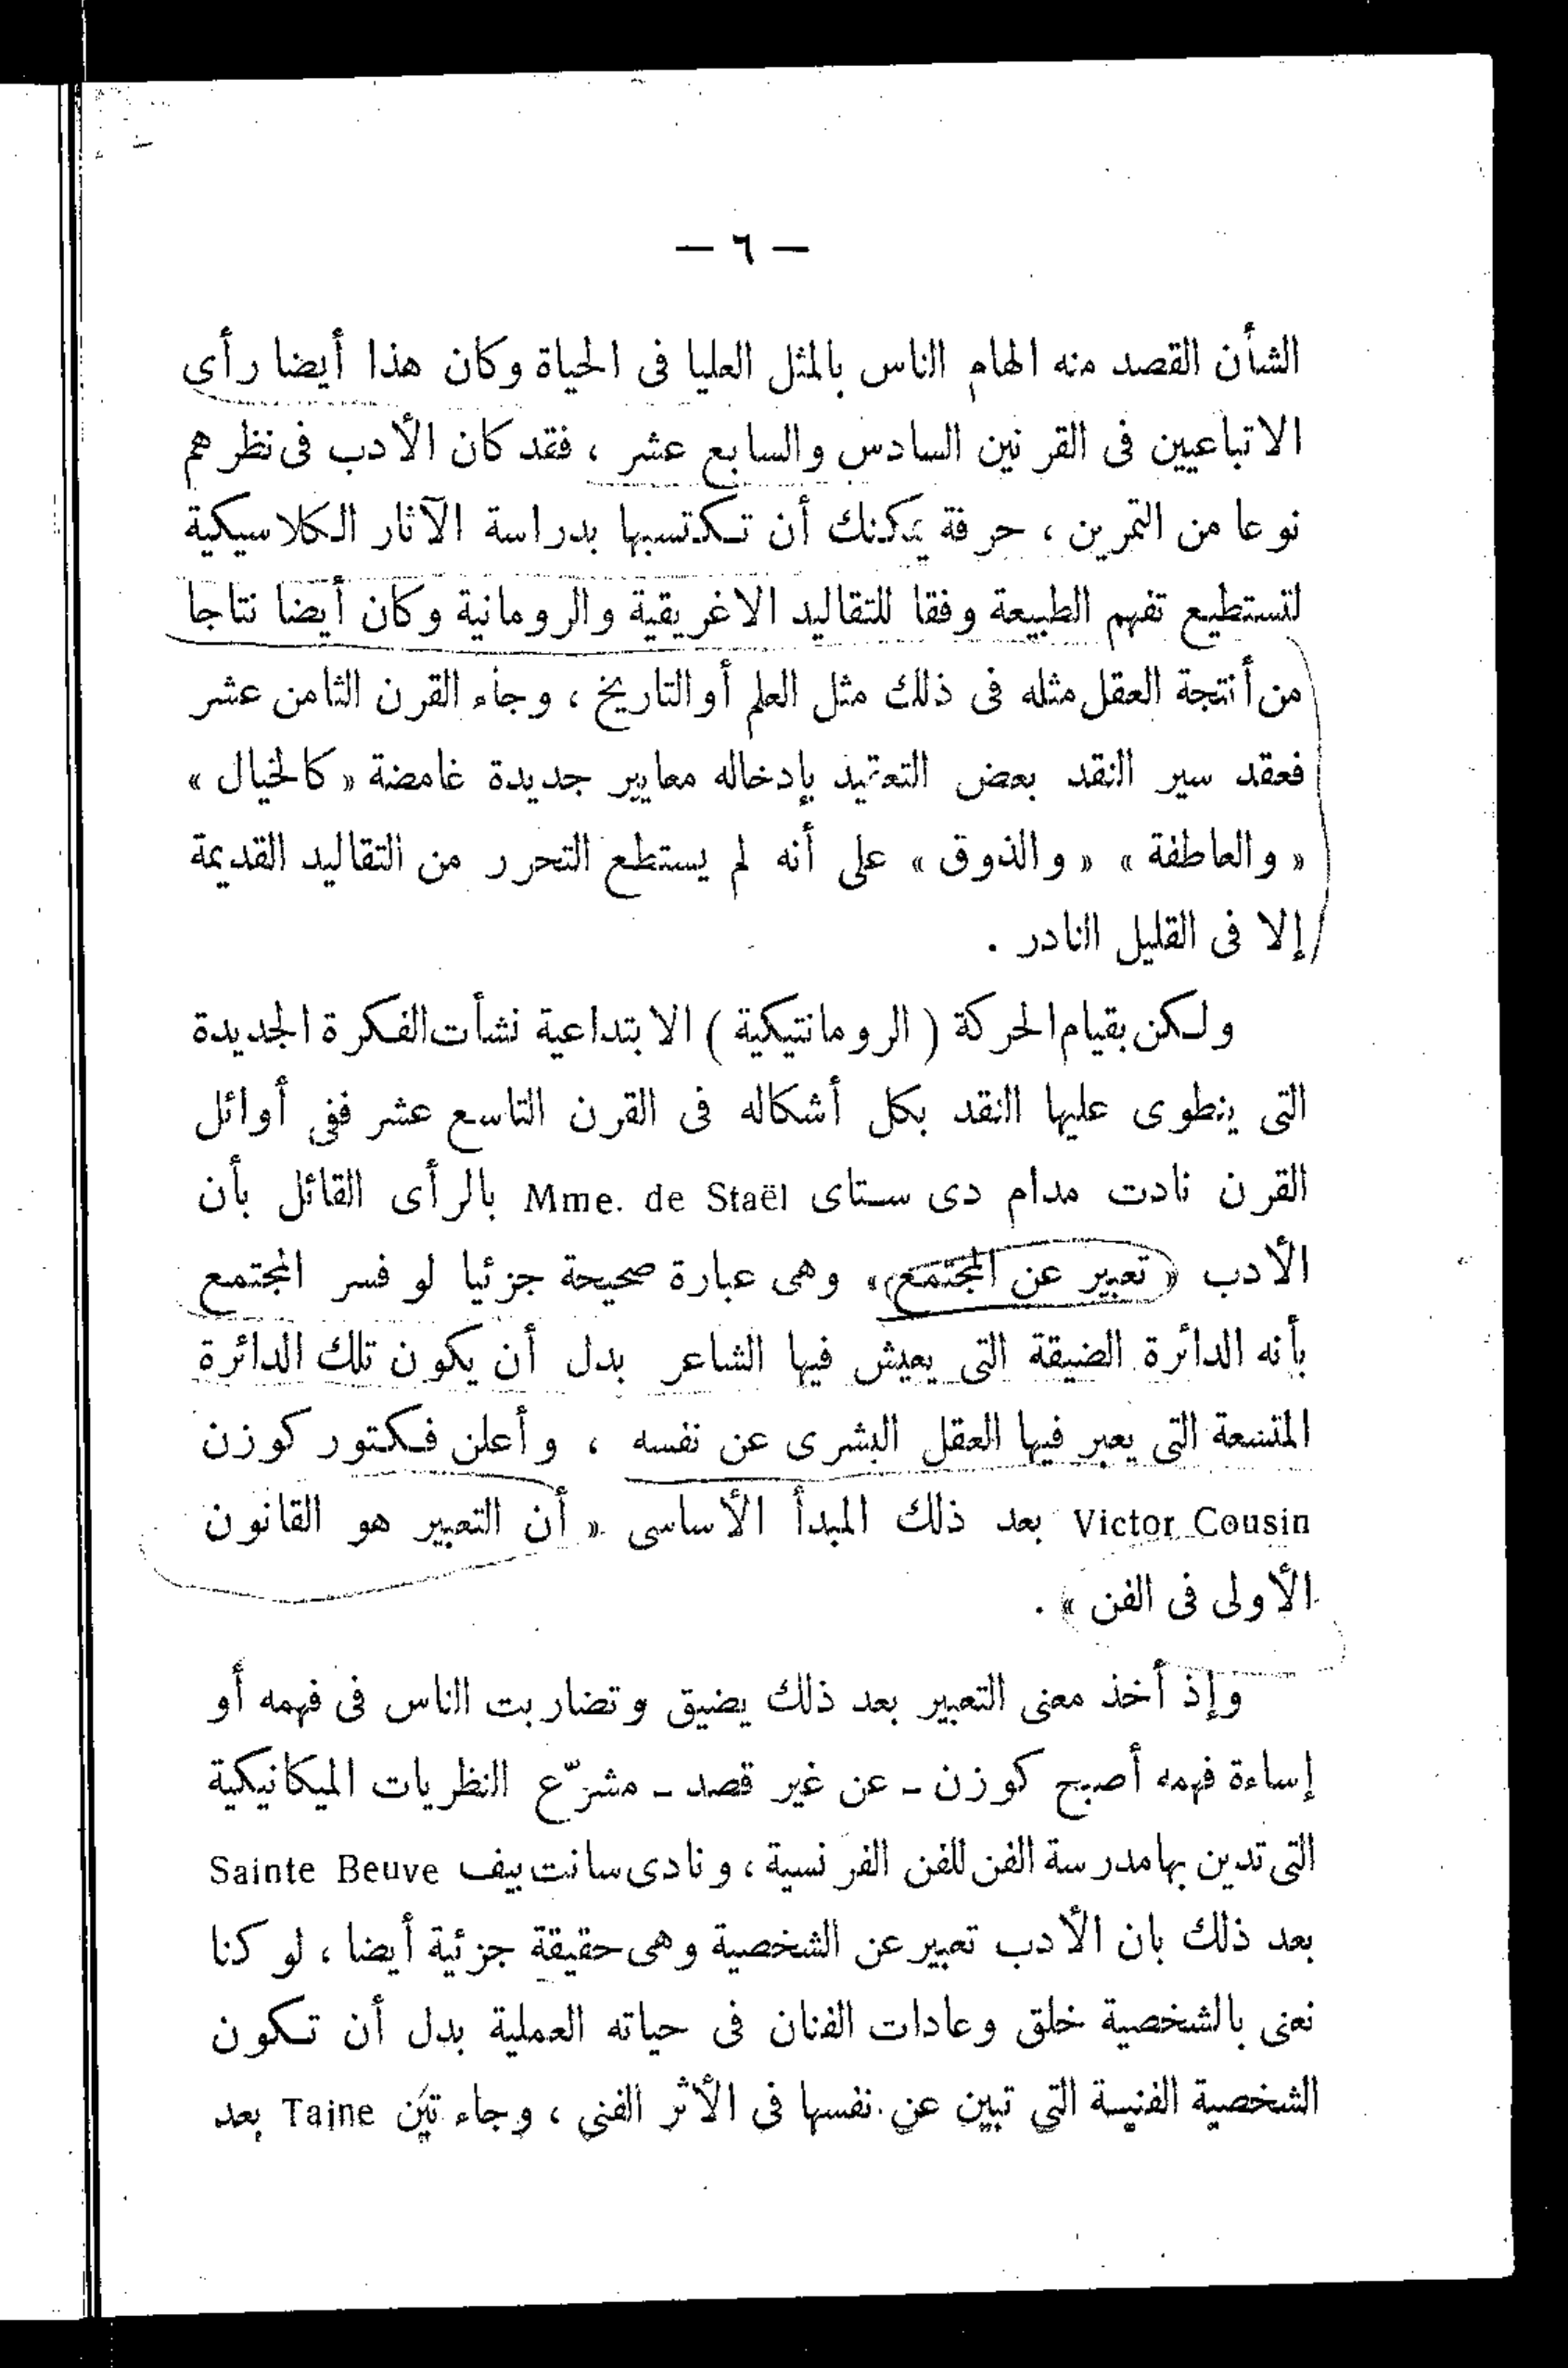 — ٦ —
الشأن القصد منه الهام الناس بالمثل العليا فى الحياة وكان هذا أيضا رأى
الاتباعيين فى القرنين السادس والسابع عشر ، فقد كان الأدب فى نظرهم
نوعا من التمرين ، حرفة يمكنك أن تكتسبها بدراسة الآثار الكلاسيكية
لتستطيع تفهم الطبيعة وفقا للتقاليد الاغريقية والرومانية وكان أيضا نتاجا
من أنتجة العقل مثله فى ذلك مثل العلم أو التاريخ ، وجاء القرن الثامن عشر
فعقد سير النقد بعض التعقيد بإدخاله معايير جديدة غامضة « كالخيال »
« والعاطفة » « والذوق » على أنه لم يستطع التحرر من التقاليد القديمة
إلا فى القليل النادر .
ولكن بقيام الحركة ( الرومانتيكية ) الابتداعية نشأت الفكرة الجديدة
التى ينطوى عليها النقد بكل أشكاله فى القرن التاسع عشر ففى أوائل
القرن نادت مدام دى ستاى Mme. de Staël بالرأى القائل بأن
الأدب « تعبير عن المجتمع » وهى عبارة صحيحة جزئيا لو فسر المجتمع
بأنه الدائرة الضيقة التى يعيش فيها الشاعر بدل أن يكون تلك الدائرة
المتسعة التى يعبر فيها العقل البشرى عن نفسه ، وأعلن فكتور كوزن
Victor Cousin بعد ذلك المبدأ الأساسى « أن التعبير هو القانون
الأولى فى الفن » .
وإذ أخذ معنى التعبير بعد ذلك يضيق وتضاربت الناس فى فهمه أو
إساءة فهمه أصبح كوزن – عن غير قصد – مشرّع النظريات الميكانيكية
التى تدين بها مدرسة الفن للفن الفرنسية ، ونادى سانت بيف Sainte Beuve
بعد ذلك بان الأدب تعبير عن الشخصية وهى حقيقة جزئية أيضا ، لو كنا
نعنى بالشخصية خلق وعادات الفنان فى حياته العملية بدل أن تكون
الشخصية الفنية التي تبين عن نفسها فى الأثر الفني ، وجاء تين Taine بعد